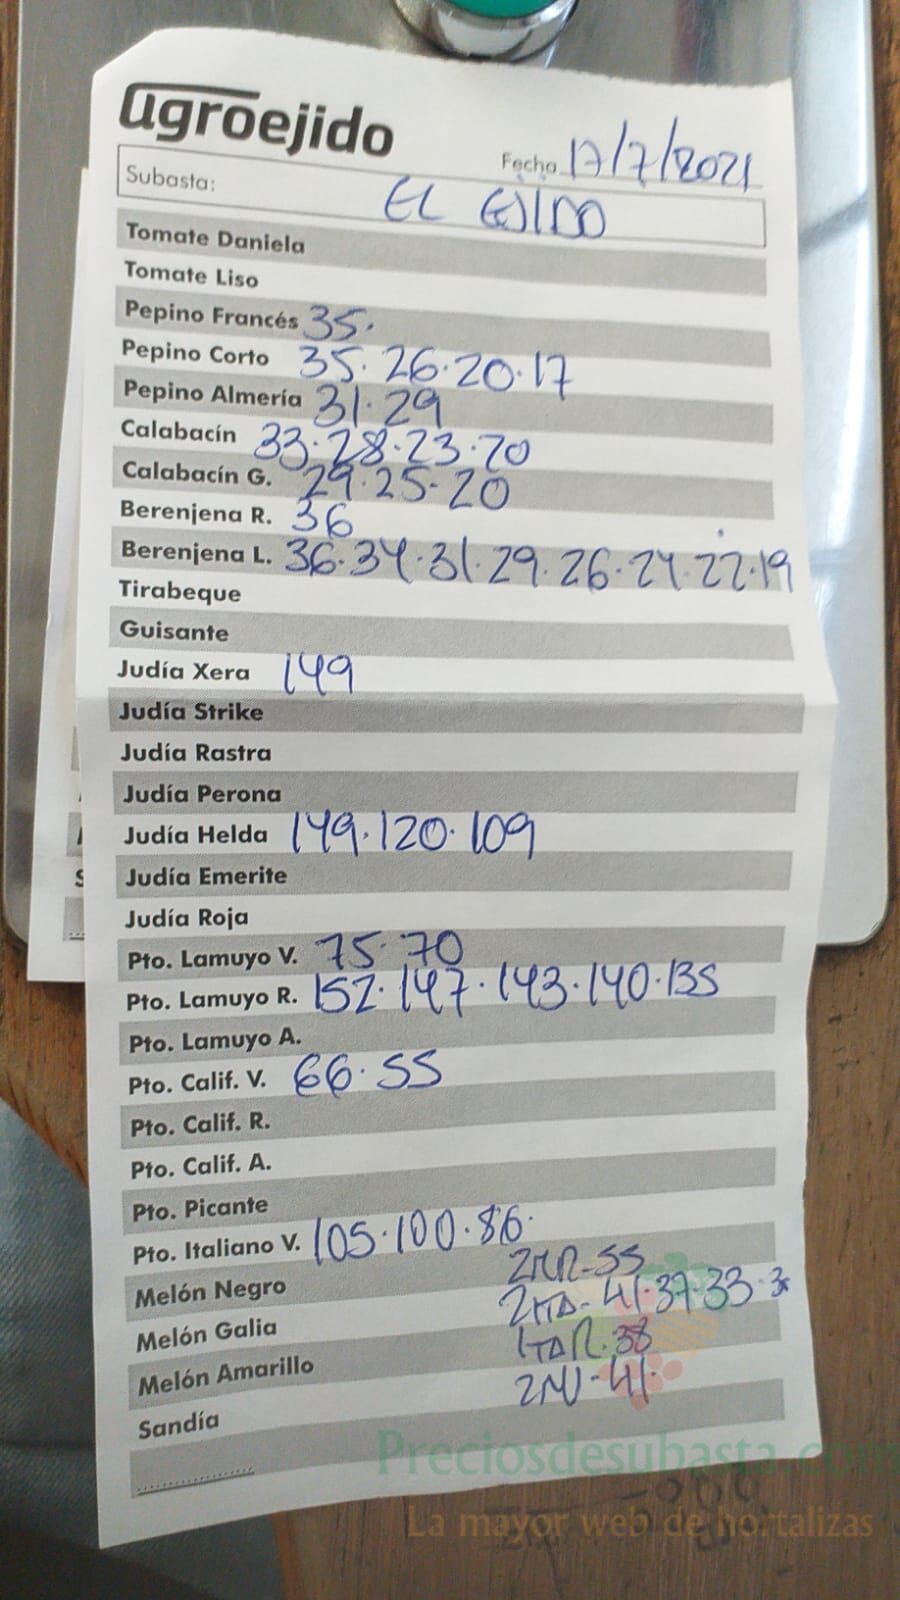 agroejido
Fecha 17/7/2021
Subasta: EL EJIDO
Tomate Daniela
Tomate Liso
Pepino Francés 35.
Pepino Corto 35.26.20.17
Pepino Almería 31.29
Calabacín 33.28.23.20
Calabacín G. 29.25.20
Berenjena R. 36
Berenjena L. 36.34.31.29.26.24.22.19
Tirabeque
Guisante
Judía Xera 149
Judía Strike
Judía Rastra
Judía Perona
Judía Helda 149.120.109
Judía Emerite
Judía Roja
Pto. Lamuyo V. 75.70
Pto. Lamuyo R. 152.147.143.140.135
Pto. Lamuyo A.
Pto. Calif. V. 66.55
Pto. Calif. R.
Pto. Calif. A.
Pto. Picante
Pto. Italiano V. 105.100.86.
Melón Negro
55
Melón Galia
41.37.33
Melón Amarillo
38
Sandía
41.
Preciosdesubasta.com
La mayor web de hortalizas